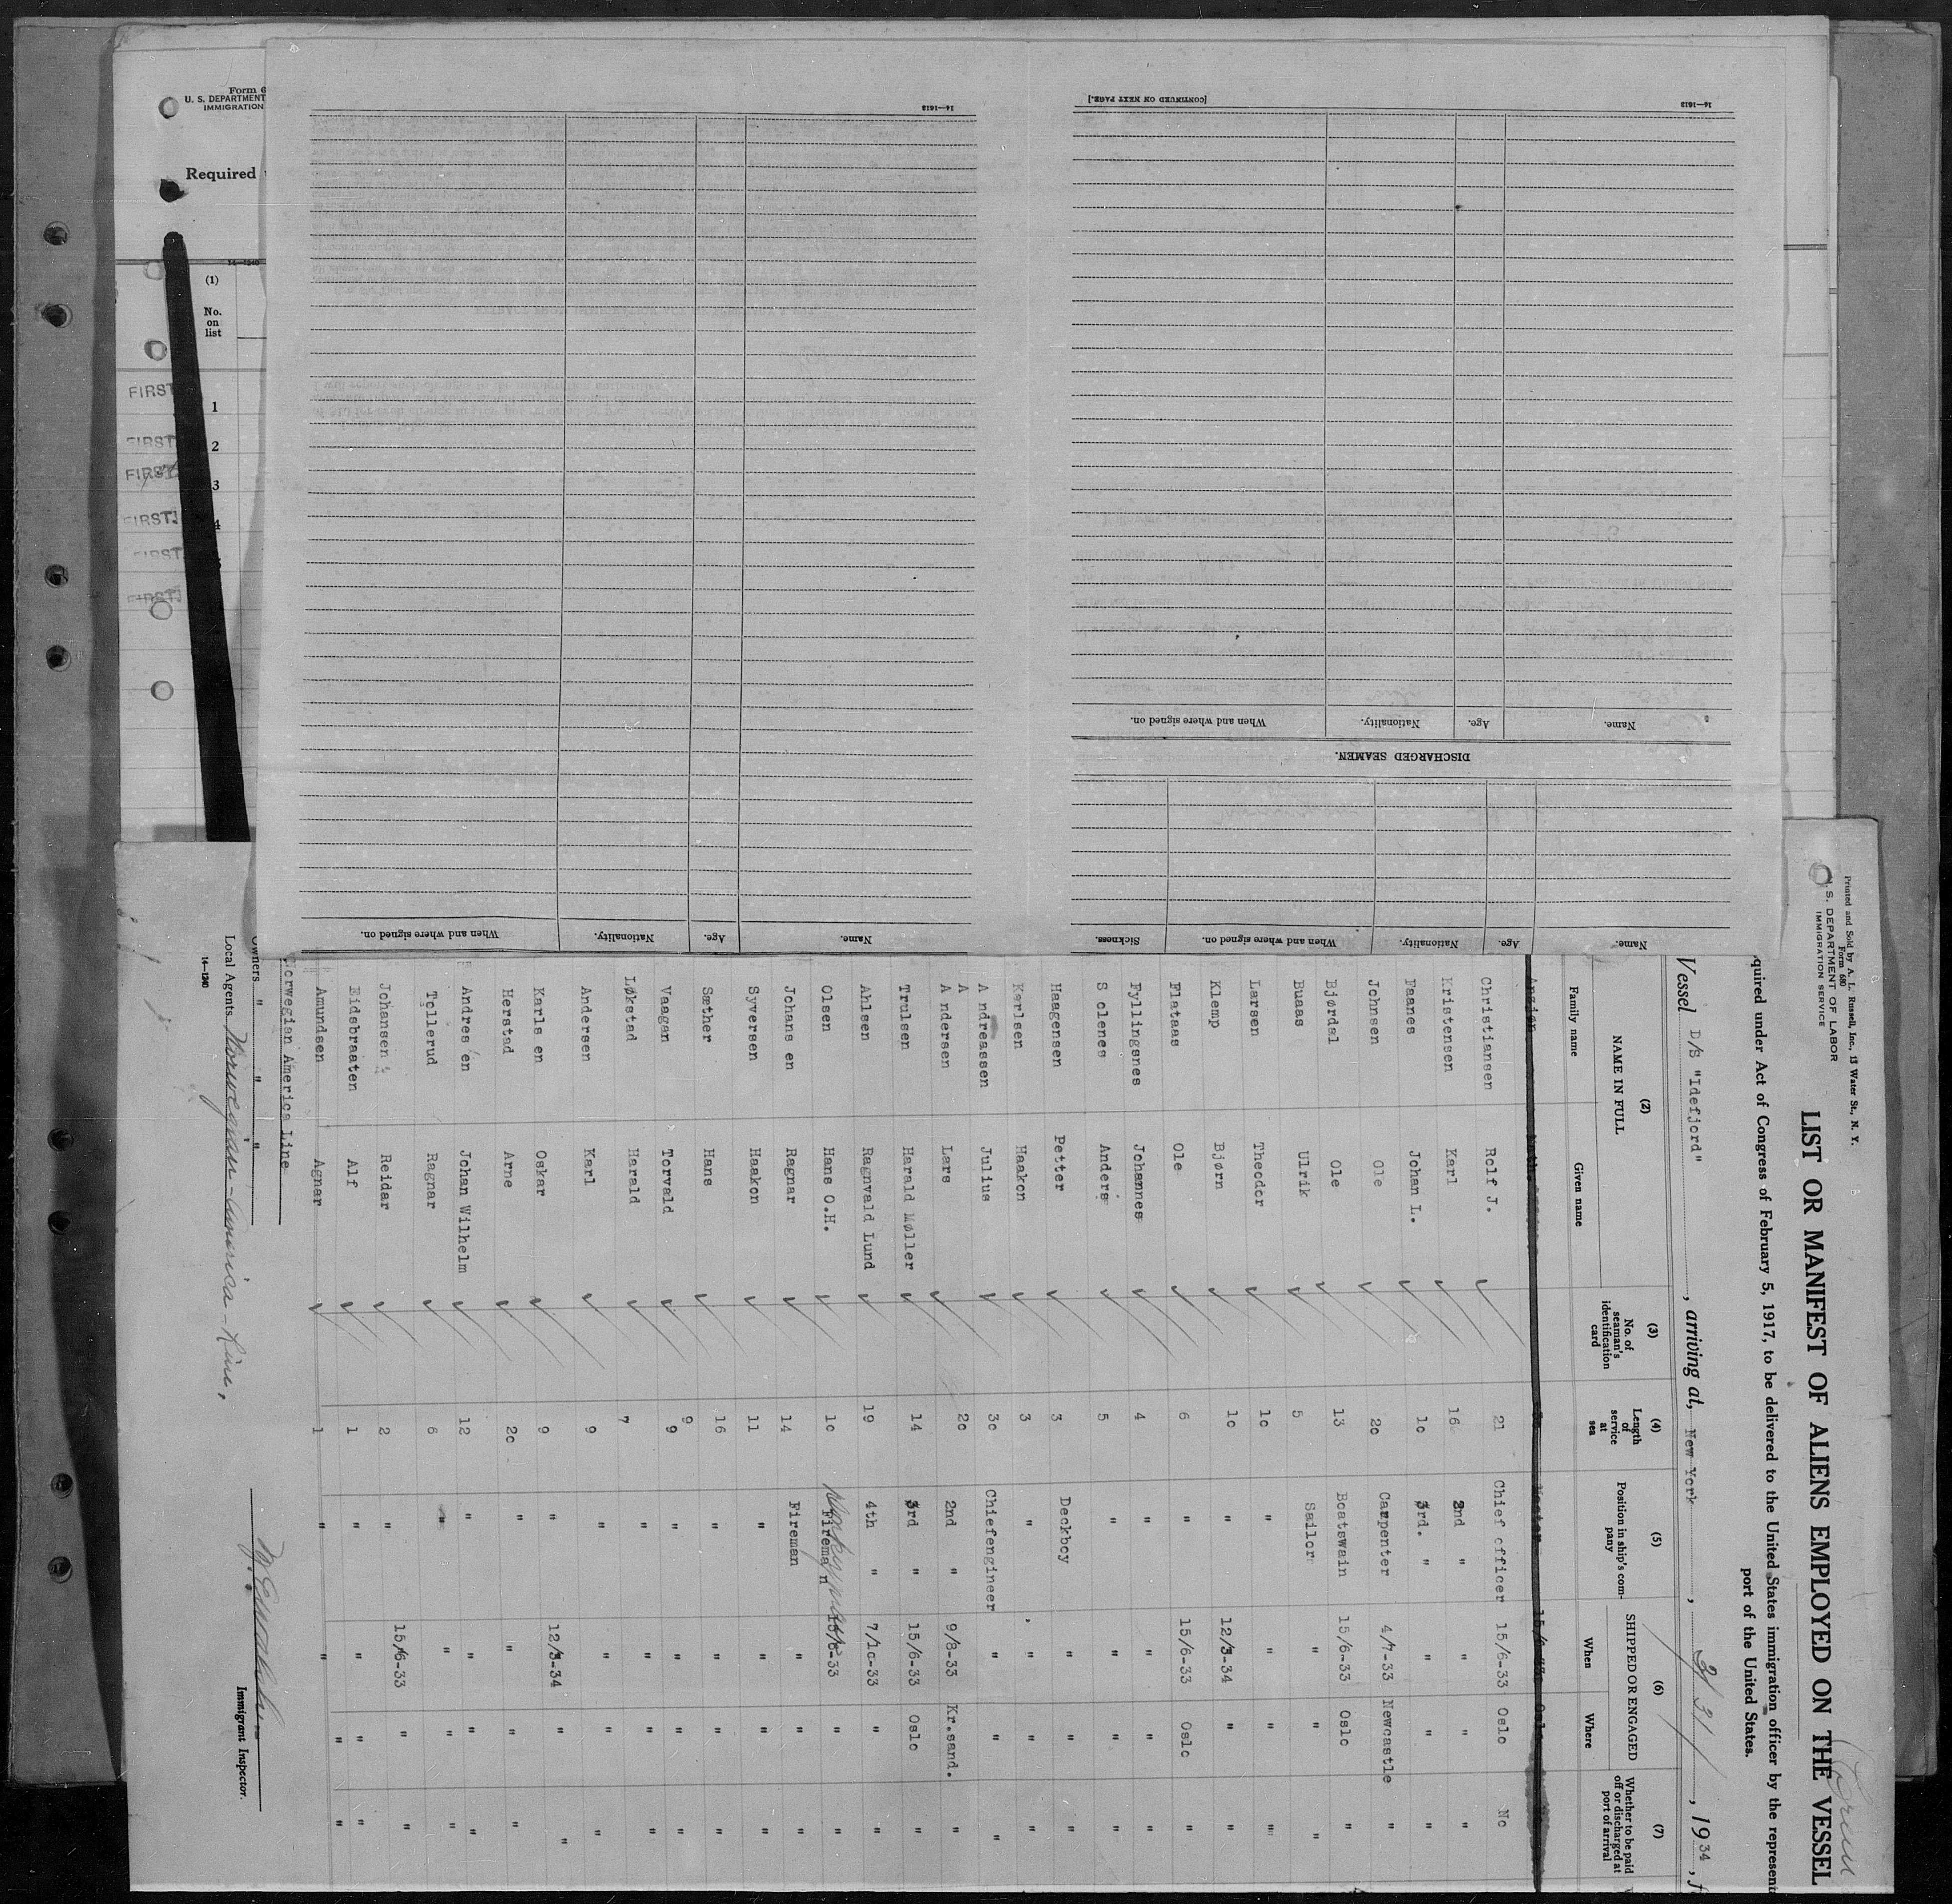 Form 6
U. S. DEPARTMENT
IMMIGRATION
Required
14—1240
(1)
No.
on
list
FIRST
1
FIRST
2
FIRST
3
FIRST
4
FIRST
FIRST
14—1613
When and where signed on.
Nationality.
Age.
Name.
[CONTINUED ON NEXT PAGE.]
14—1613
When and where signed on.
Nationality.
Age.
Name.
DISCHARGED SEAMEN.
Sickness.
When and where signed on.
Nationality.
Age.
Name.
Printed and Sold by A. L. Russell, Inc., 13 Water St., N. Y.
Form 680
S. DEPARTMENT OF LABOR
IMMIGRATION SERVICE
LIST OR MANIFEST OF ALIENS EMPLOYED ON THE VESSEL
quired under Act of Congress of February 5, 1917, to be delivered to the United States immigration officer by the represen
port of the United States.
Vessel D/S "Idefjord", arriving at, New York, 3/31, 1934, f
(2)
NAME IN FULL
Family name
Given name
(3)
No. of
seaman's
identification
card
(4)
Length
of
service
at
sea
(5)
Position in ship's com-
pany
(6)
SHIPPED OR ENGAGED
When
Where
(7)
Whether to be paid
off or discharged at
port of arrival
Christiansen Rolf J. 21 Chief officer 15/6-33 Oslo No
Kristensen Karl 16 2nd " " " "
Faanes Johan L. 10 3rd. " " " "
Johnsen Ole 20 Carpenter 4/7-33 Newcastle "
Bjørdal Ole 13 Boatswain 15/6-33 Oslo "
Buaas Ulrik 5 Sailor " " "
Larsen Theodor 10 " " " "
Klemp Bjørn 10 " 12/3-34 " "
Flataas Ole 6 " 15/6-33 Oslo "
Fyllingsnes Johannes 4 " " " "
Solenes Anders 5 " " " "
Haagensen Petter 3 Deckboy " " "
Karlsen Haakon 3 " " " "
Andreassen Julius 30 Chiefengineer " " "
A
Andersen Lars 20 2nd " 9/8-33 Kr.sand. "
Trulsen Harald Møller 14 3rd " 15/6-33 Oslo "
Ahlsen Ragnvald Lund 19 4th " 7/10-33 " "
Olsen Hans O.H. 10 Fireman 15/6-33 " "
Johansen Ragnar 14 Fireman " " "
Syversen Haakon 11 " " " "
Sæther Hans 16 " " " "
Vaagan Torvald 9 9 " " " "
Løkstad Harald 7 " " " "
Andersen Karl 9 " " " "
Karlsen Oskar 9 " 12/3-34 " "
Herstad Arne 20 " " " "
Andresen Johan Wilhelm 12 " " " "
Tollerud Ragnar 6 " " " "
Johansen Reidar 2 " 15/6-33 " "
Eidsbraaten Alf 1 " " " "
Amundsen Agnar 1 " " " "
Norwegian America Line
Owners " " "
Local Agents Norwegian-America-Line,
Immigrant Inspector.
14—1240